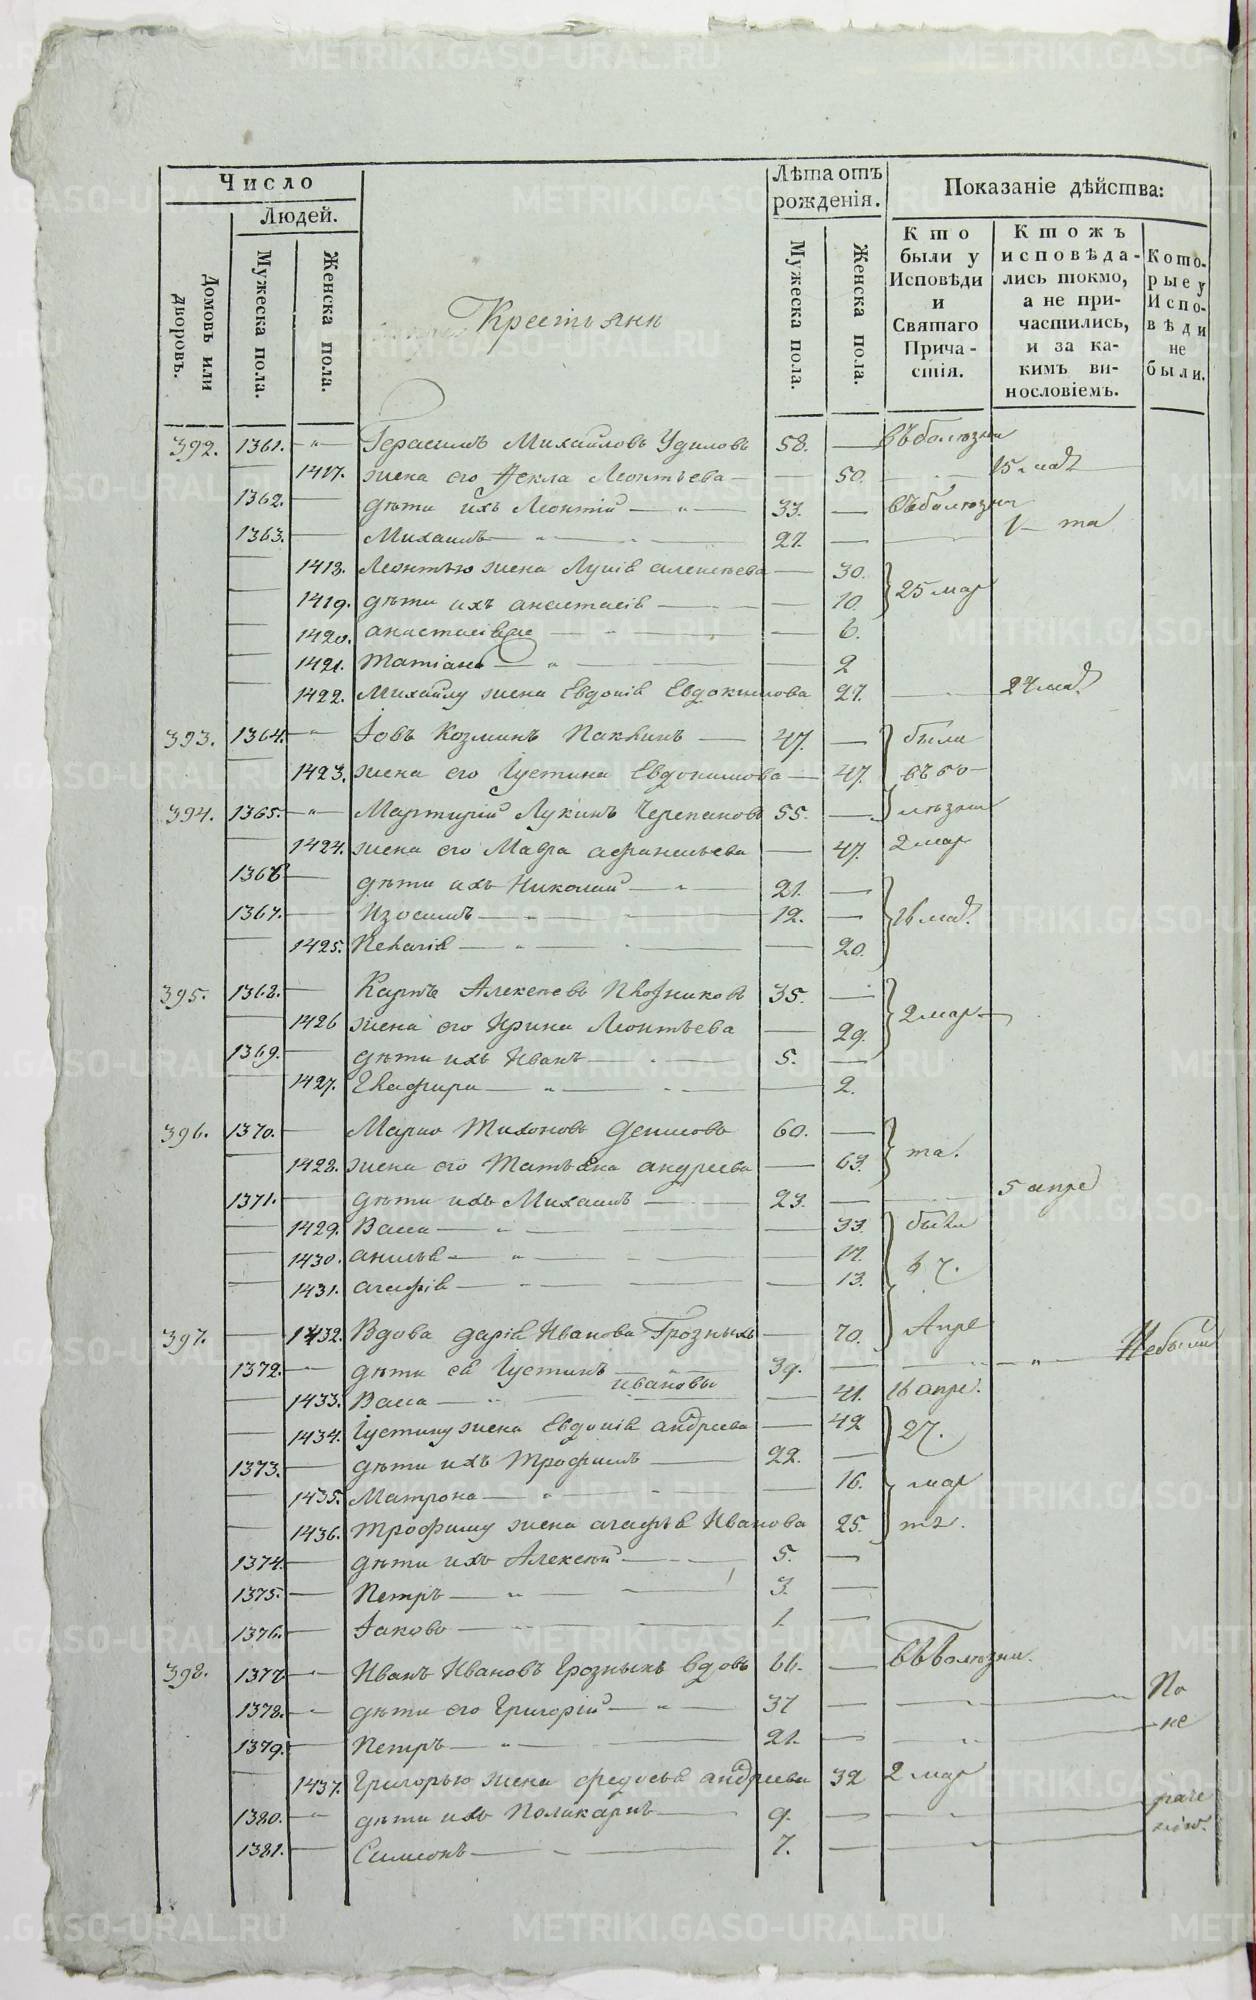 Число
Людей.
Домовъ или дворовъ.
Мужеска пола.
Женска пола.
Лѣта отъ рожденія.
Мужеска пола.
Женска пола.
Показаніе дѣйства:
Кто были у Исповѣди и Святаго Прича-стія.
Ктожъ исповѣда-лись токмо, а не при-частились, и за ка-кимъ ви-нословіемъ.
Кото-рые у Испо-вѣди не были.
Крестьяне
392. 1361. Герасимъ Михайловъ Удиловъ 58. въ болюзни
1417. жена его Фекла Леонтьева 50. 15 маѧ
1362. дѣти ихъ Леонтій 33. въ болюзни
1363. Михаилъ 27. 1 та
1418. Леонтью жена Лукія алексѣева 30.
1419. дѣти ихъ анастасія 10. 25 мар
1420. анастасія же 6.
1421. татіана 2
1422. Михаилу жена Евдокія Евдокимова 27. 24 маѧ
393. 1364. Іовъ Козминъ Пакинъ 47. были
1423. жена его Іустина Евдокимова 47. въ бо-
394. 1365. Мартирій Лукинъ Черепановъ 55. люзни
1424. жена его Мавра афанасьева 47. 2 мар
1366 дѣти ихъ Николай 21.
1367. Изосимъ 12. 16 маѧ
1425. Пелагія 20.
395. 1368. Карпъ Алексѣевъ Плотниковъ 35.
1426 жена его Ирина Леонтьева 29. 2 мар
1369. дѣти ихъ Иванъ 5.
1427. Глафира 2.
396. 1370. Марко Тихоновъ Денисовъ 60.
1428. жена его Татьяна андреева 63. та.
1371. дѣти ихъ Михаилъ 23. 5 апре
1429. Васса 33. были
1430. анисья 17. 7.
1431. агафія 13.
397. 1432. Вдова дарія Иванова Грозныхъ 70. Апре
1372. дѣти ея Іустинъ 39. Небыли
Ивановы
1433. Васса 41. 16 апре.
1434. Іустину жена Евдокія андреева 42 27.
1373. дѣти ихъ Трофимъ 22.
1435. Матрона 16. мар
1436. Трофиму жена агафья Иванова 25. та.
1374. дѣти ихъ Алексѣй 5.
1375. Петръ 3.
1376. Іаковъ 1.
398. 1377 Иванъ Ивановъ Грозныхъ вдовъ 66. въ болюзни.
1378. дѣти его Григорій 37 По
1379. Петръ 21. не
1437. Григорью жена федосья андреева 32 2 мар
1380. дѣти ихъ Поликарпъ 9. раче
1381. Симеонъ 7. нію.